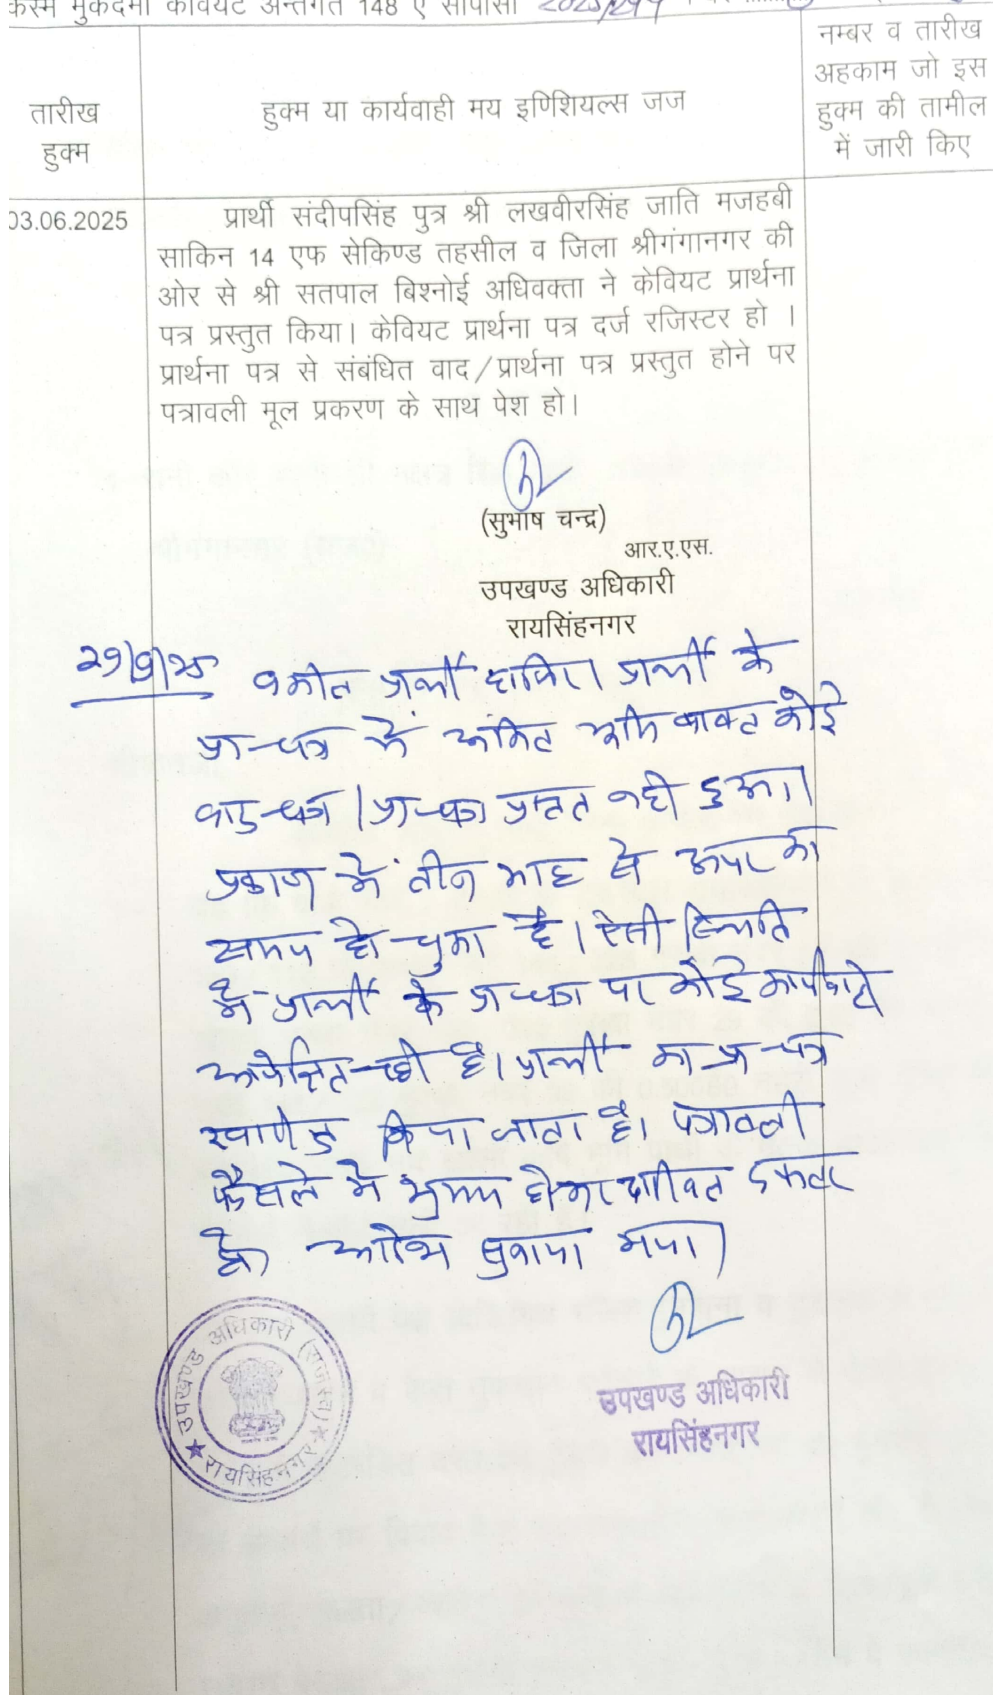 किस्म मुकदमा कैवियट अन्तर्गत 148 ए सीपीसी 2025/244
नम्बर व तारीख
अहकाम जो इस
हुक्म की तामील
में जारी किए
तारीख
हुक्म
हुक्म या कार्यवाही मय इणिशियल्स जज
03.06.2025
प्रार्थी संदीपसिंह पुत्र श्री लखवीरसिंह जाति मजहबी
साकिन 14 एफ सेकिण्ड तहसील व जिला श्रीगंगानगर की
ओर से श्री सतपाल बिश्नोई अधिवक्ता ने केवियट प्रार्थना
पत्र प्रस्तुत किया। केवियट प्रार्थना पत्र दर्ज रजिस्टर हो ।
प्रार्थना पत्र से संबंधित वाद/प्रार्थना पत्र प्रस्तुत होने पर
पत्रावली मूल प्रकरण के साथ पेश हो।
(सुभाष चन्द्र)
आर.ए.एस.
उपखण्ड अधिकारी
रायसिंहनगर
29/9/25 वकील प्रार्थी हाजिर। प्रार्थी के
प्रा-पत्र में अंकित भूमि बाबत कोई
वाद-पत्र / प्रा-पत्र प्रस्तुत नही हुआ।
प्रकरण में तीन माह से ऊपर का
समय हो चुका है। ऐसी स्थिति
में प्रार्थी के प्रा-पत्र पर कोई कार्यवाही
अपेक्षित नही है। प्रार्थी का प्रा-पत्र
खारिज किया जाता है। पत्रावली
फैसले में शुमार होकर दाखिल दफ्तर
हो। आदेश सुनाया गया।
उपखण्ड अधिकारी
रायसिंहनगर
उपखण्ड अधिकारी (राजस्व)
रायसिंहनगर